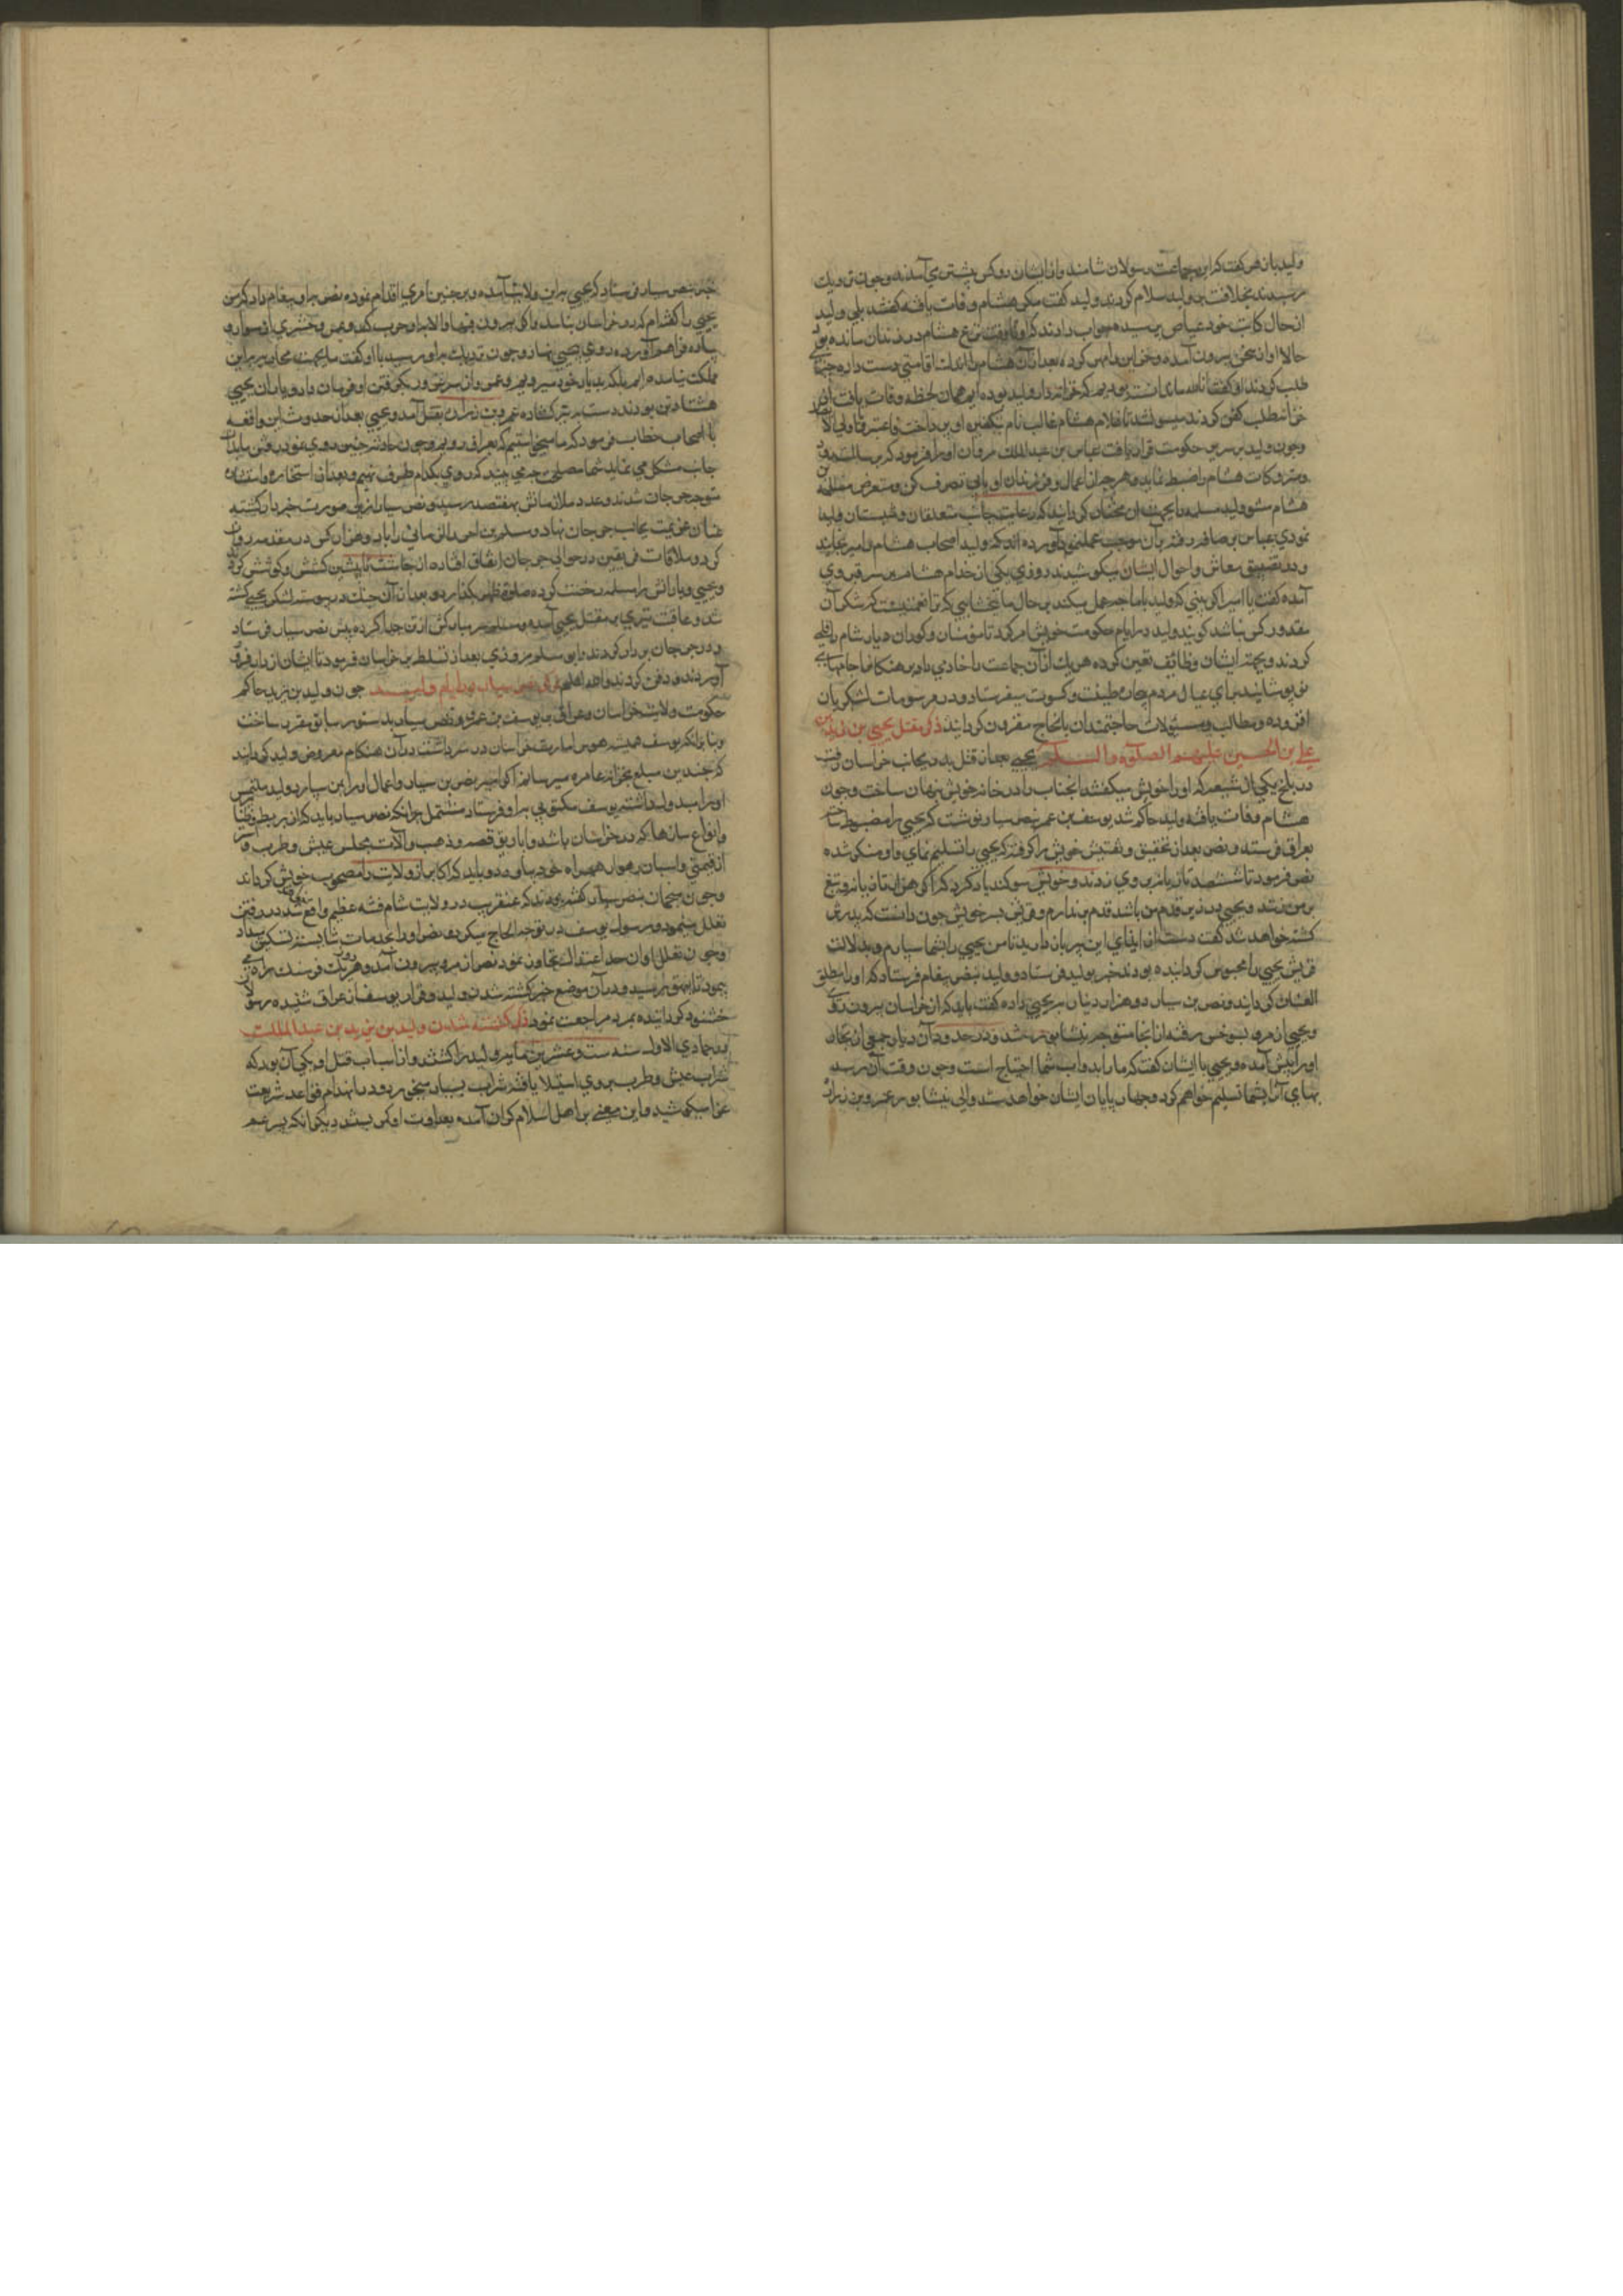 ولید بانهر گفت که این جماعت رسولان شامند و از ایشان دو کس پیشتر می آمدند و چون نزدیک
رسیدند بخلافت بر ولید سلام کردند ولید گفت مکر هشام وفات یافته گفتند بلی ولید
از حال کاتب خود عیاض پرسیده جواب دادند که او تا وقت نزع هشام در زندان مانده بود
حالا او از سجن بیرون آمده و خزاین را مهر کرده بعد از آن هشام را اندک افاقتی دست داده
طلب کردند او گفت انا لله ما خزانه دار ولید بوده ایم همان لحظه وفات یافت
خزانه طلب کفن کردند میسر نشد تا غلام هشام غالب نام
و چون ولید بر سریر حکومت قرار یافت عباس بن عبد الملك مروان او را فرمود که
ومتروکات هشام را ضبط نماید و هر چه از اعمال و فرزندان او یابی تصرف کن و متعرض مسلمه
هشام مشو ولید مسلمه را بجهت آن مخصوص گردانید که رعایت جانب متعلقان
نمودی عباس برصافه رفته بر آن موجب عمل نمود آورده اند که ولید اصحاب هشام را میرنجانید
و در تضییق معاش و احوال ایشان میکوشید روزی یکی از خدام هشام بر سر قبر وی
آمده گفت یا امیر اگر ببینی که ولید با ما چه عمل میکند بر حال ما
مقدور کس نباشد گویند ولید در ایام حکومت خویش امر کرد تا مزمنان و کوران دیار شام را
کردند و بجهة ایشان وظایف تعیین کرده هر یک از آن جماعت را خادمی داد
می پوشانید برای عیال مردم طیب و کسوت میفرستاد و در مرسومات لشکریان
افزوده و مطالب و مسئولات حاجتمندان بانجاح مقرون گردانید ذکر مقتل یحیی بن زید بن
علی بن الحسین علیهم الصلوة والسلام یحیی بعد از قتل پدر بجانب خراسان رفت
در بلخ یکی از شیعه که او را خویش میگفتند آنجناب را در خانه خویش پنهان ساخت و چون
هشام وفات یافته ولید حاکم شد یوسف بن عمر بنصر سیار نوشت که یحیی را مضبوط ساخته
بعراق فرستد و نصر بعد از تحقیق و تفتیش خویش را گرفته که یحیی را تسلیم نمای و او منکر شده
نصر فرمود تا ششصد تازیانه بر وی زدند و خویش سوگند یاد کرد که اگر هزار تازیانه و تیغ
بر من زنند و یحیی در زیر قدم من باشد قدم بر ندارم و قریش پسر خویش چون دانست که پدرش
کشته خواهد شد گفت دست از ایذای این پیر باز دارید تا من یحیی را بشما سپارم و بدلالت
قریش یحیی را محبوس گردانیده بودند خبر بولید فرستاد و ولید بنصر پیغام فرستاد که او را مطلق
العنان گرداند و نصر بن سیار دو هزار دینار به یحیی داده گفت باید که از خراسان بیرون روی
و یحیی از مرو بسرخس رفته از آنجا متوجه نیشابور شد و در حدود آن دیار جمعی از تجار
او را پیش آمده و یحیی با ایشان گفت که ما را بدواب شما احتیاج است و چون وقت آن رسد
بهای آن بشما تسلیم خواهم کرد و والی نیشابور عمرو بن زراره
خبر بنصر سیار فرستاد که یحیی براین ولایت آمده و بر چنین امری اقدام نموده نصر باو پیغام داد که من
یحیی را گفته ام که در خراسان نباشد و اگر بیرون نرود با او حرب کن و عمرو حشری از سواره و
پیاده فراهم آورده روی به یحیی نهاد و چون نزدیک باو رسید با او گفت ما بجهت محاربه براین
مملکت نیامده ایم بلکه بدیار خود میرویم و عمرو و یاران یحیی
هشتاد تن بودند دست بتیر گشاده عمرو بن زراره بقتل آمد و یحیی بعد از حدوث این واقعه
با اصحاب خطاب فرمود که ما میخواستیم که بعراق رویم و چون حادثه چنین روی نمود رفتن بدان
جانب مشکل می نماید شما مصلحت چه می بینید که روی بکدام طرف نهیم و بعد از استخاره و استشاره
متوجه جوزجان شدند و عدد ملازمانش بهفتصد رسید و نصر سیار ازین صورت خبردار گشته
عنان عزیمت بجانب جوزجان نهاد و سلم بن احوز المازنی را با دو هزار کس در مقدمه روان
کرد و ملاقات فریقین در حوالی جوزجان اتفاق افتاده از چاشت تا پیشین کشش و کوشش کردند
و یحیی و یارانش را سلم رخصت کرده صلوة ظهر بگزاردند و بعد از آن جنگ در پیوسته لشکر یحیی کشته
شد و عاقبت تیری بر مقتل یحیی آمده و سلم سر مبارکش از تن جدا کرده پیش نصر سیار فرستاد
و در جوزجان بردار کردند و ابو مسلم مروزی بعد از تسلط بر خراسان فرمود تا ایشان از دار فرود
آوردند و دفن کردند والله اعلم ذکر نصر سیار در ایام ولید چون ولید بن یزید حاکم
حکومت ولایت خراسان و عراق بر یوسف بن عمر و نصر سیار بدستور سابق مقرر ساخت
و بنا برآنکه یوسف همیشه هوس امارت خراسان در سر داشت در آن هنگام معروض ولید گرداند
که چندین مبلغ بخزانه عامره میرسانم اگر امیر نصر بن سیار و اعمال او را بمن سپارد ولید ملتمس
او را مبذول داشته یوسف مکتوبی بمرو فرستاد مشتمل بر آنکه نصر سیار باید که از بربط و طنبور
و انواع سازها که در خراسان باشد و اباریق فضه و ذهب و آلات مجلس عیش و طرب
از قیمتی و اسپان رهوار همراه خود بیاورد و باید که اکابر آن ولایت را مصحوب خویش گرداند
و چون منجمان بنصر سیار گفته بودند که عنقریب در ولایت شام فتنه عظیم واقع شود در رفتن
تعلل مینمود و رسول یوسف در توجه الحاح میکرد و نصر او را بخدمات شایسته تسکین میداد
و چون تعلل او از حد اعتدال تجاوز نمود نصر از مرو بیرون آمد و هر روز یک فرسنگ راه
می پیمود تا رسید و در آن موضع خبر کشته شدن ولید و فرار یوسف از عراق شنیده رسول
خشنود گردانیده بمرو مراجعت نمود ذکر کشته شدن ولید بن یزید بن عبد الملك
در جمادی الاول سنه ست و عشرین و مایه ولید را کشتند و از اسباب قتل او یکی آن بود که
شراب عیش و طرب بر وی استیلا یافته شراب بسیار میخورد و در انهدام قواعد شریعت
غرا میکوشید و این معنی بر اهل اسلام گران آمده بعداوت او کمر بستند دیگر آنکه پسر عم